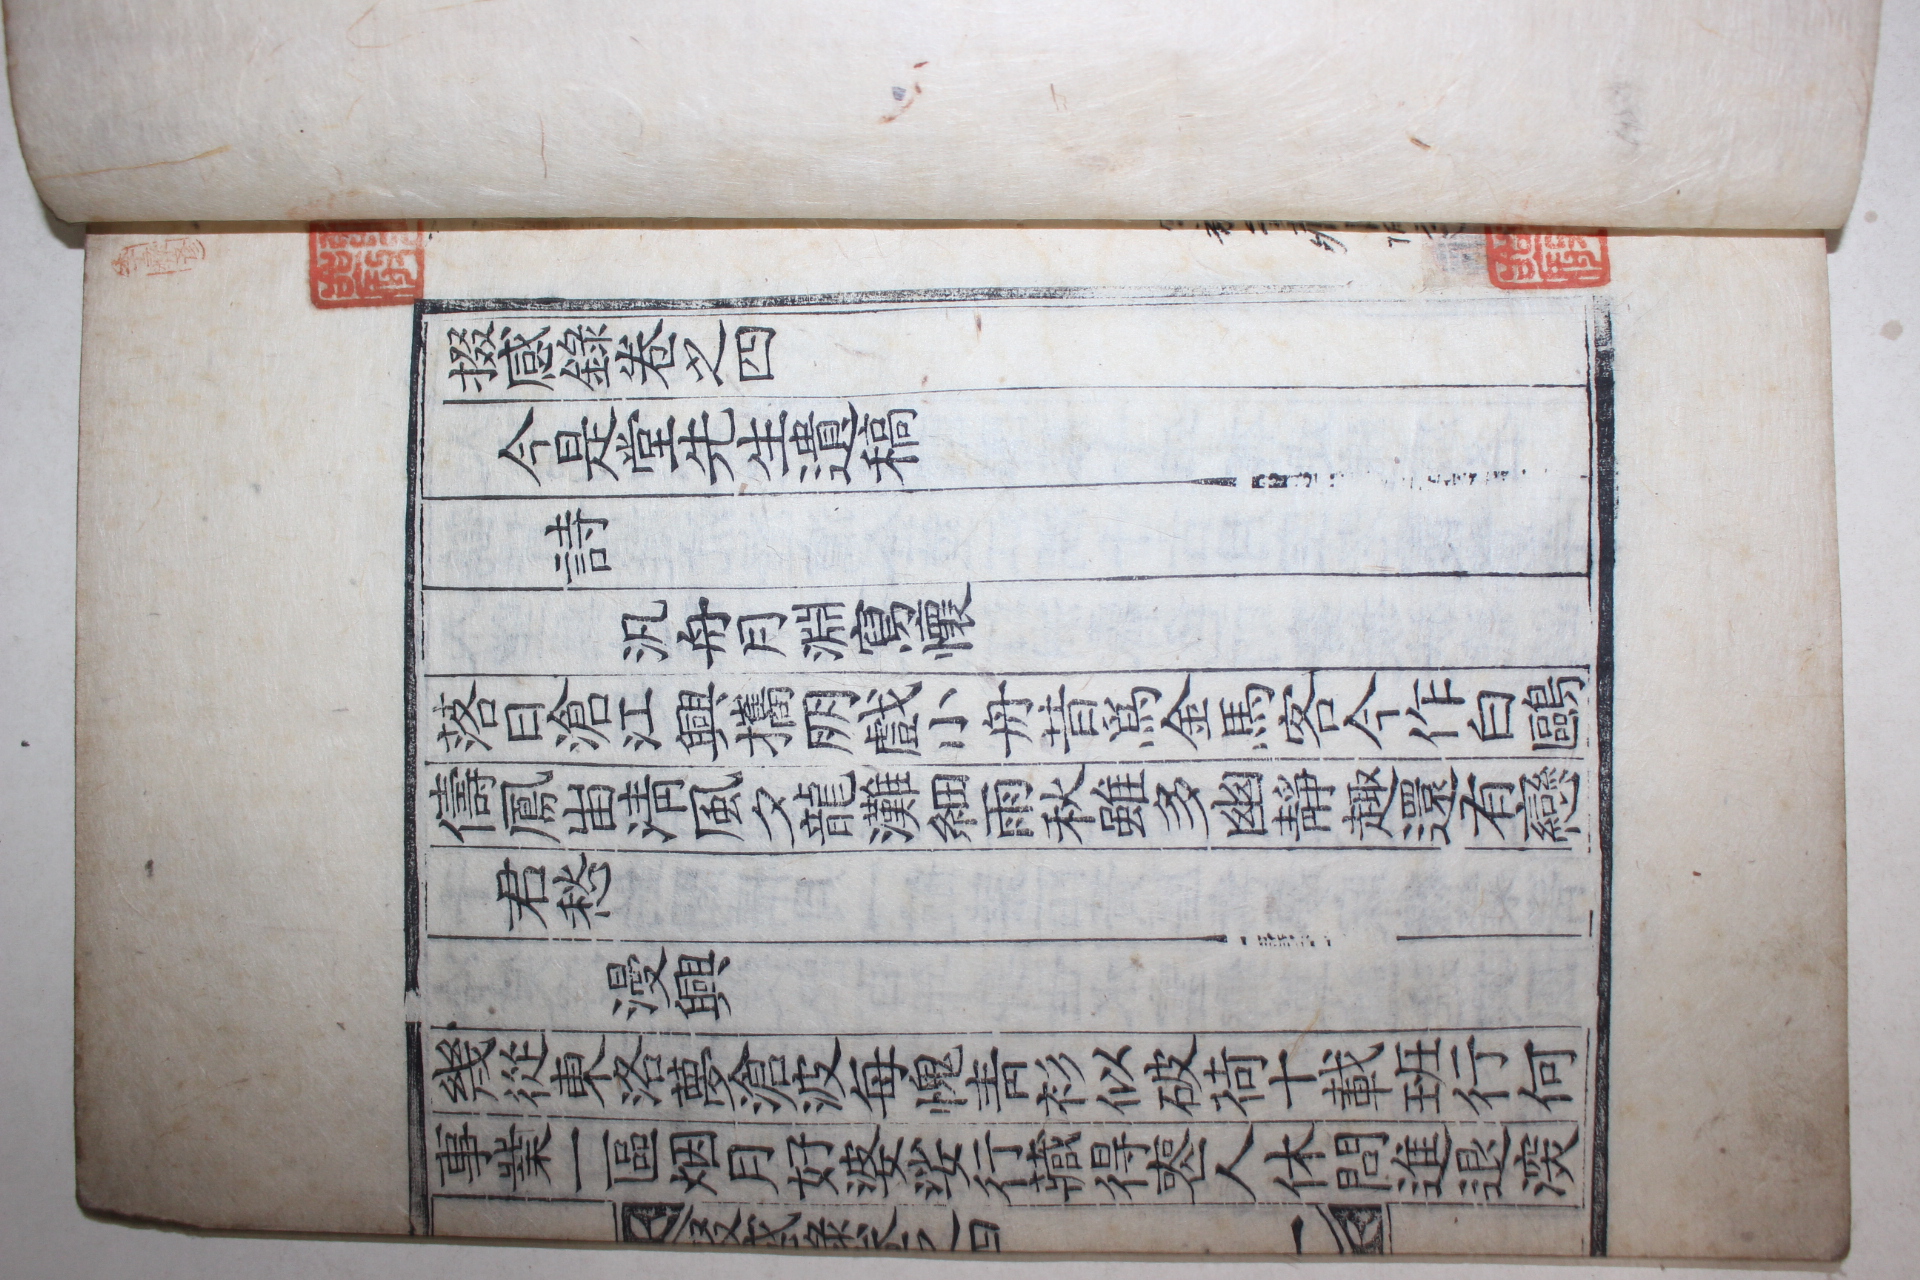 掇感錄卷之四
今是堂先生遺稿
詩
汎舟月淵寫懷
落日滄江興攜朋戲小舟昔爲金馬客今作白鷗
儔鳳峀淸風夕龍灘細雨秋雖多幽靜趣還有戀
君愁
漫興
幾從東洛夢滄波每愧靑衫似破荷十載班行何
事業一區烟月好婆娑行藏得喪人休問進退深
掇感錄卷之四
一